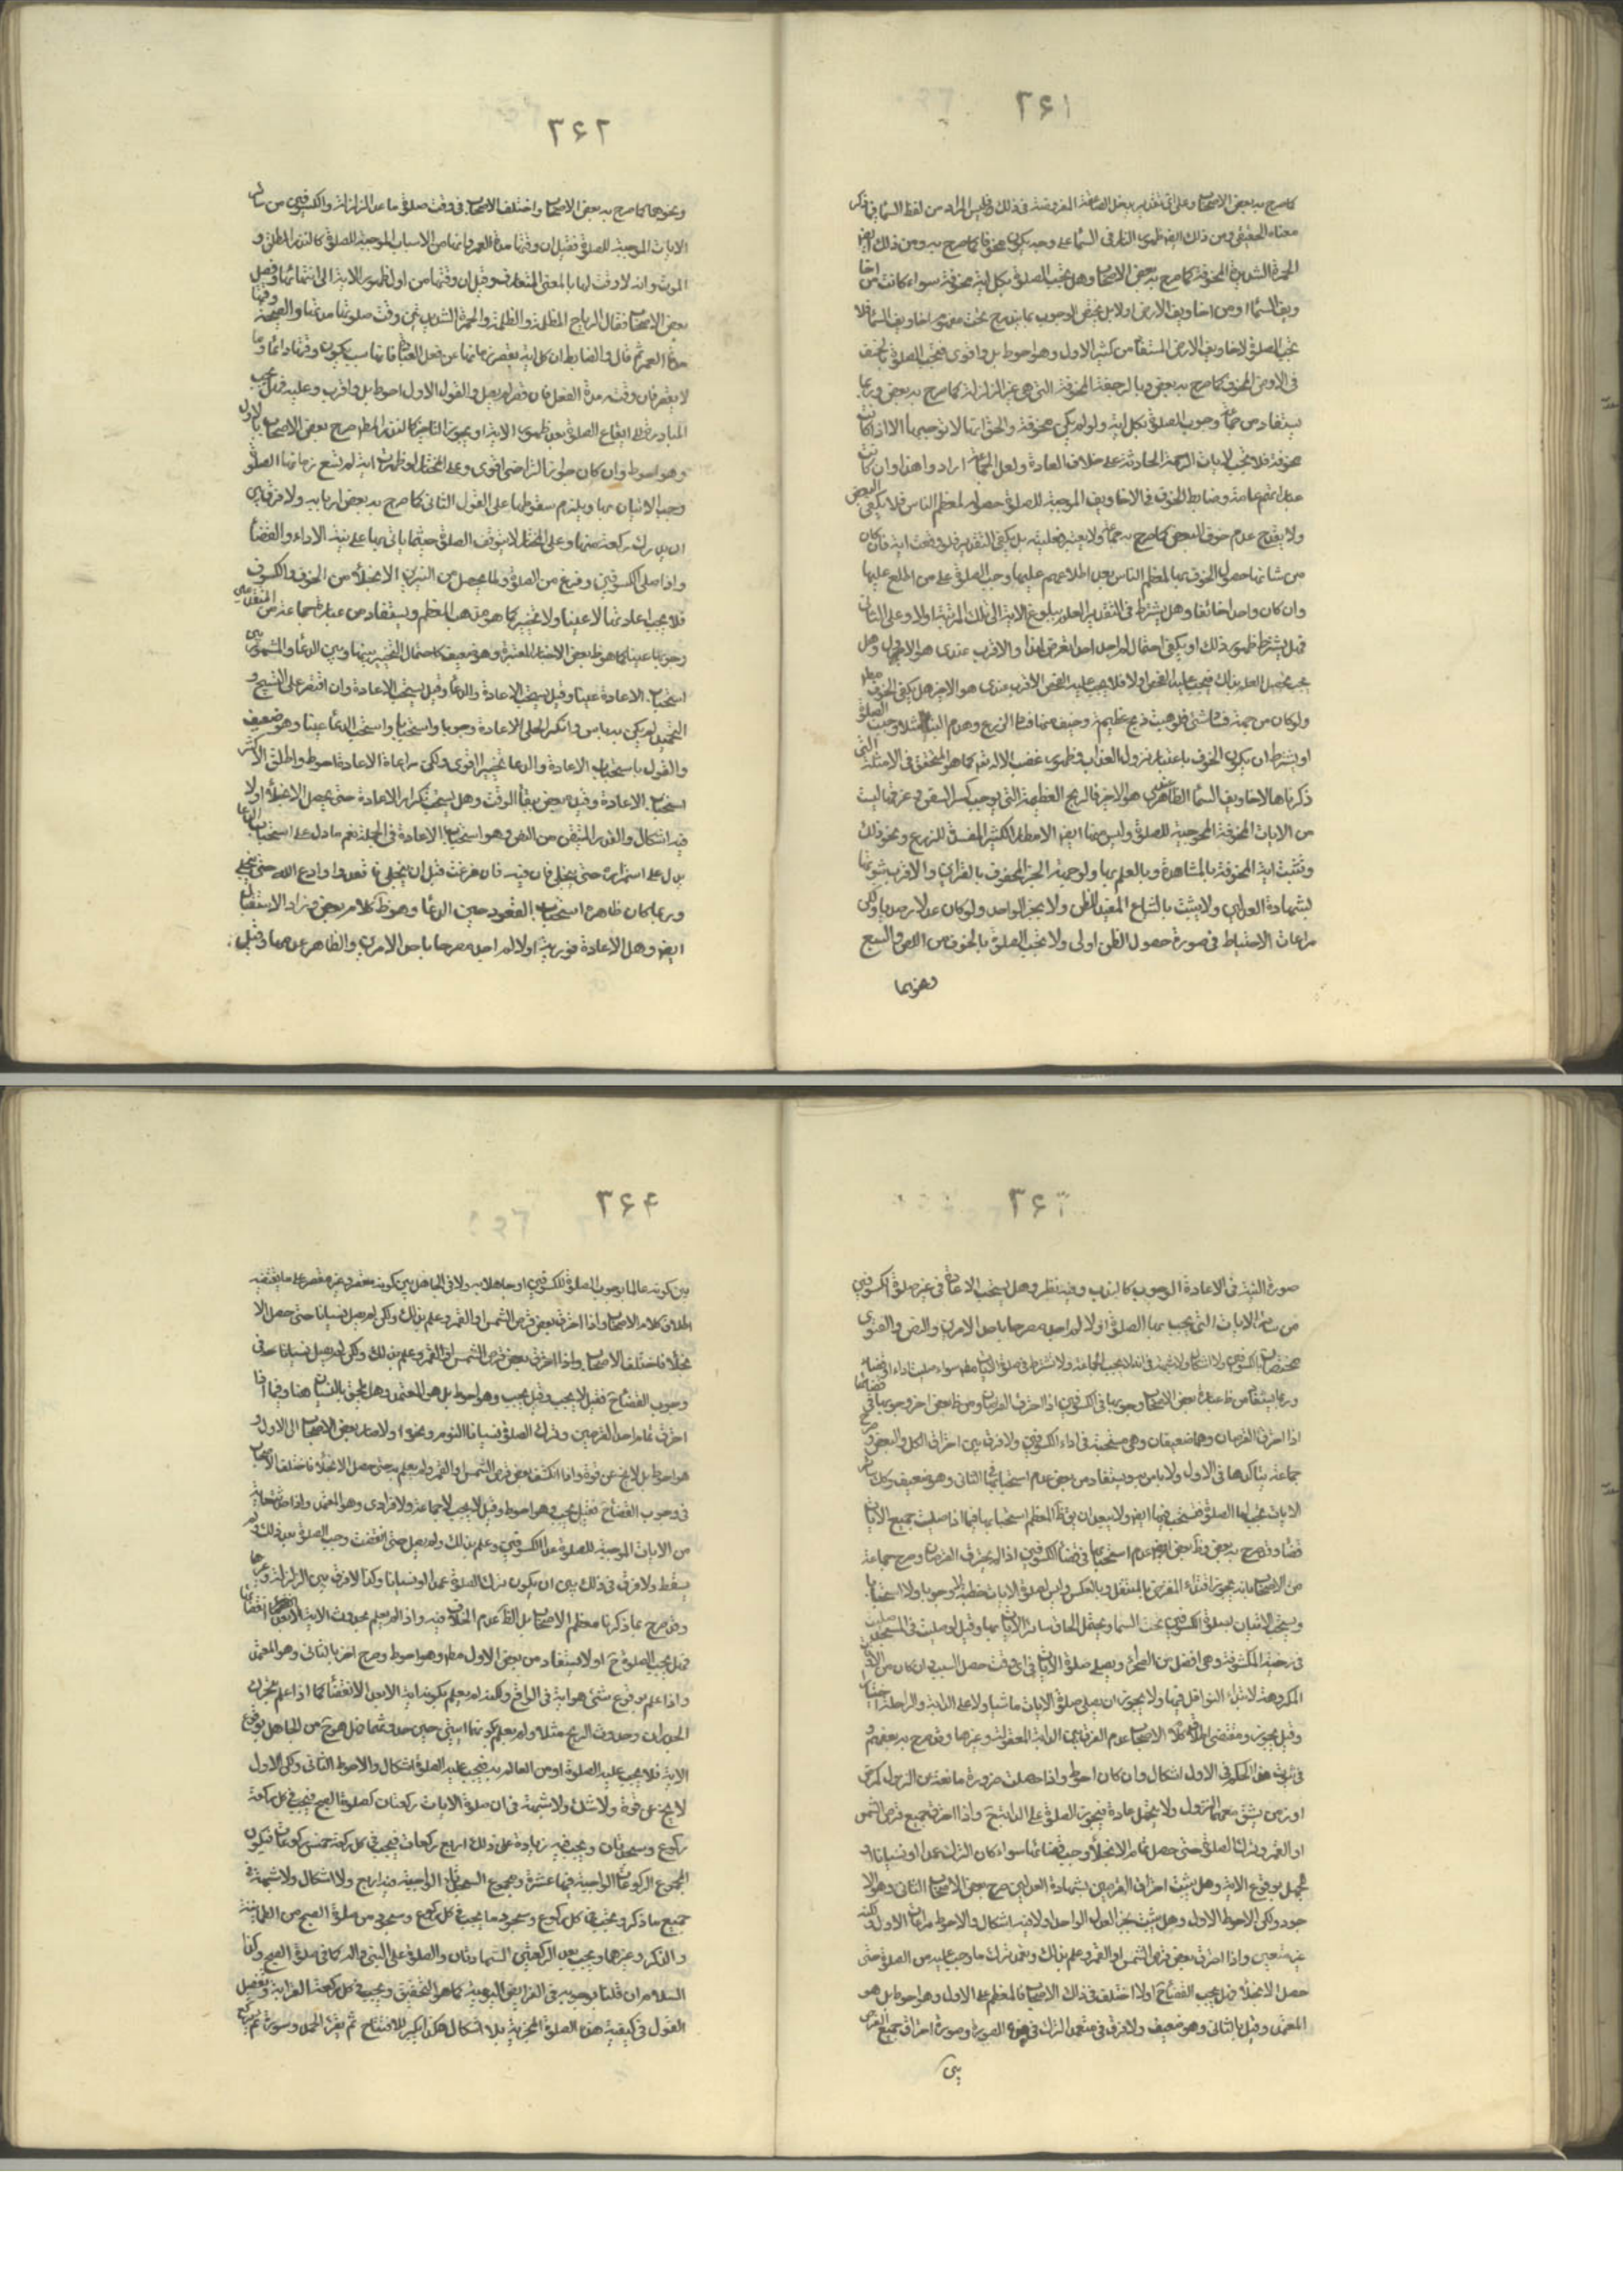 ٣۶١
كما صرح به بعض الاصحاب وعلى اى تقدير يدخل الصاعقة المفروضة فى ذلك وليس المراد من لفظ السماء فى ذكر
معناه الحقيقى ومن ذلك ايضا ظهور النار فى السماء على وجه يكون مخوفا كما صرح به ومن ذلك ايضا
الحمرة الشديدة المخوفة كما صرح به بعض الاصحاب وهل يجب الصلوة بكل اية مخوفة سواء كانت من اخا
ويف السماء او من اخاويف الارض او لا بل يختص الوجوب بما يندرج تحت مفهوم اخاويف السماء فلا
يجب الصلوة لاخاويف الارض المستفاد من كثير الاول وهو احوط بل واقوى فيجب الصلوة بالخسف
فى الارض المخوف كما صرح به بعض وبالرجفة المخوفة التى هى غير الزلزلة كما صرح به بعض وربما
يستفاد من جماعة وجوب الصلوة بكل اية ولو لم يكن مخوفة والحق انها لا توجبها الا اذا كانت
مخوفة فلا يجب لايات الرحمة الحادثة على خلاف العادة ولعل الجماعة ارادوا هذا وان كانت
عباراتهم عامة وضابط الخوف فى الاخاويف الموجبة للصلوة حصوله لمعظم الناس فلا يكفى البعض
ولا يقدح عدم خوف البعض كما صرح به جماعة ولا يعتبر فعليته بل يكفى التقدير فلو وقعت اية فان كان
من شانها حصول الخوف بها لمعظم الناس بعد اطلاعهم عليها وجب الصلوة على من اطلع عليها
وان كان واحدا خائفا وهل يشترط فى التقدير العلم ببلوغ الاية الى تلك المرتبة او لا وعلى الثانى
فهل يشترط ظهور ذلك او يكفى احتمال لم اجد احدا تعرض لهذا والاقرب عندى هو الاول وهل
يجب تحصيل العلم بذلك فيجب عليه الفحص او لا فلا يجب عليه الفحص الاقرب عندى هو الاخير هل يكفى الخوف مطلقا
ولو كان من جهة فلو هبت ريح عظيمة وخيف منها فساد الزرع وهدم البناء مثلا وجبت الصلوة
او يشترط ان يكون الخوف باعتبار نزول العذاب وظهور غضب الاله تعالى كما هو المتحقق فى الامثلة التى
ذكرناها لاخاويف السماء الظاهر عندى هو الاخر فالريح العظيمة التى يوجب كسر السفن وغرقها ليست
من الايات المخوفة الموجبة للصلوة وليس منها ايضا الامطار الكثيرة المفسدة للزرع ونحو ذلك
وتثبت اية المخوفة بالمشاهدة وبالعلم بها ولو جهة الخبر المحفوف بالقراين والاقرب ثبوتها
بشهادة العدلين ولا يثبت بالشياع المفيد للظن ولا بخبر الواحد ولو كان عدلا رصديا ولكن
مراعات الاحتياط فى صورة حصول الظن اولى ولا يجب الصلوة بالخوف من اللص والسبع
ونحوهما
٣۶٢
ونحوهما كما صرح به بعض الاصحاب واختلف الاصحاب فى وقت صلوة ما عدا الزلزلة والكسوفين من سائر
الايات الموجبة للصلوة فقيل ان وقتها مدة العمر وانها من الاسباب الموجبة للصلوة كالنذر المطلق و
الموت وانه لا وقت لها بالمعنى المتعارف وقيل ان وقتها من اول ظهور الاية الى انتهائها وفصل
بعض الاصحاب فقال الرياح المظلمة والظلمة والحمرة الشديدتين وقت صلوتها مدتها والصيحة وقتها
مدة العمر ثم قال والضابط ان كل اية يقصر زمانها عن فعل العبادة فانها سبب يكون وقتها دائما وما
لا يقصر فان وقته مدة الفعل فان قصر لم يصل والقول الاول احوط بل واقرب وعليه فهل يجب
المبادرة الى ايقاع الصلوة بعد ظهور الاية او يجوز التاخير كالنذر المط صرح بعض الاصحاب بالاول
وهو احوط وان كان جواز التراخى اقوى وعلى المختار لو ظهرت اية لم تسع زمانها الصلوة
وجب الاتيان بها ويلزم سقوطها على القول الثانى كما صرح به بعض اربابه ولا فرق بين
ان يدرك ركعة منها وعلى المختار لا يتوقف الصلوة حيثما ياتى بها على نية الاداء والقضاء
واذا صلى الكسوفين وفرغ من الصلوة ولما يحصل من النيرين الانجلاء من الخسوف والكسوف
فلا يجب اعادتها لا عينا ولا تخييرا كما هو مذهب المعظم ويستفاد من عبارة جماعة من المتقدمين
وجوبها عينا كما هو ظاهر بعض الاخبار المعتبرة وهو ضعيف كاحتمال التخيير بينها وبين الدعاء والمشهور بين
استحباب الاعادة عينا وقيل يستحب الاعادة والدعاء وقيل يستحب الاعادة وان اقتصر على التسبيح و
التحميد لم يكن به باس وانكر الحلى الاعادة وجوبا واستحبابا واستحب الدعاء عينا وهو ضعيف
والقول باستحباب الاعادة والدعاء تخييرا قوى ولكن مراعاة الاعادة احوط واطلق الاكثر
استحباب الاعادة وقيده بعض ببقاء الوقت وهل يستحب تكرار الاعادة حتى يحصل الانجلاء او لا
فيه اشكال والقدر المتيقن من النص وهو استحباب الاعادة فى الجملة نعم ما دل على استحباب الدعاء
يدل على استمراره حتى ينجلى فان فيه فان فرغت قبل ان ينجلى فاقعد وادع الله حتى ينجلى
وربما كان ظاهره استحباب القعود حين الدعاء وهو ظ كلام بعض وزاد الاستقبال
ايضا وهل الاعادة فورية او لا لم اجد مصرحا باحد الامرين والظاهر عدمها وقيل
٣۶٣
صورة النية فى الاعادة الوجوب كالندب وفيه نظر وهل يستحب الاعادة فى غير صلوة الكسوفين
من سائر الايات التى يجب بها الصلوة او لا لم اجد مصرحا باحد الامرين والنص والفتوى
مختصان بالكسوفين ولا اشكال ولا شبهة فى انه لا يجب الجماعة ولا تشترط فى صلوة الايات مط سواء صليت اداء او قضاء
وربما يستفاد من ظ عبارة بعض الاصحاب وجوبها فى الكسوفين اذا احترق القرصان ومن ظ بعض اخر وجوبها فى قضائها
اذا احترق القرصان وهما ضعيفان وهى مستحبة فى اداء الكسوفين ولا فرق بين احتراق الكل والبعض وصرح
جماعة بتاكدها فى الاول ولا باس به ويستفاد من بعض عدم استحبابها فى الثانى وهو ضعيف وكك سائر
الايات يجب لها الصلوة فتستحب فيها ايضا ولا يبعد ان يق ظ المعظم استحبابها فيما اذا صليت جميع الايات
قضاء وقد صرح به بعض وظ بعض ايضا عدم استحبابها فى قضاء الكسوفين اذا لم يحترق القرصان وصرح جماعة
من الاصحاب بانه يجوز اقتداء المفترض بالمتنفل وبالعكس وليس لصلوة الايات خطبة لا وجوبا ولا استحبابا
ويستحب الاتيان بصلوة الكسوفين تحت السماء ويحتمل الحاق سائر الايات بها وقيل لو صليت فى المسجد صليت
فى رحبته المكشوفة وهى افضل من الصحراء ويصلى صلوة الايات فى اى وقت حصل السبب وان كان من الاوقات
المكروهة لابتداء النوافل فيها ولا يجوز ان يصلى صلوة الايات ماشيا ولا على الدابة والراحلة اختيارا
وقيل يجوز ومقتضى اطلاق كلام الاصحاب عدم الفرق بين الدابة المعقولة وغيرها وقد صرح به بعضهم و
فى ثبوت هذا الحكم فى الاول اشكال وان كان احوط واذا حصلت ضرورة مانعة من النزول كمرض
او زمن يشق معهما النزول ولا يتحمل عادة فيجوز الصلوة على الدابة ح واذا احترق جميع قرص الشمس
او القمر وترك الصلوة حتى حصل تمام الانجلاء وجب قضائها سواء كان الترك عمدا او نسيانا و
جهل بوقوع الاية وهل يثبت احتراق القرصين بشهادة العدلين صرح بعض الاصحاب الثانى وهو لا
جود ولكن الاحوط الاول وهل يثبت بخبر العدل الواحد او لا فيه اشكال والاحوط مراعات الاول ولكنه
غير متعين واذا احترق بعض قرص الشمس او القمر وعلم بذلك وتعمد ترك ما وجب عليه من الصلوة حتى
حصل الانجلاء فهل يجب القضاء ح او لا اختلف فى ذلك الاصحاب فالمعظم على الاول وهو احوط بل هو
المعتمد وقيل بالثانى وهو ضعيف ولا فرق فى متعمد الترك فى هذه الصورة وصورة احتراق جميع القرص
بين
٣۶۴
بين كونه عالما بوجوب الصلوة للكسوفين او جاهلا به ولا فى الجاهل بين كونه مقصر وغير مقصر على ما يقتضيه
اطلاق كلام الاصحاب واذا احترق بعض قرص الشمس او القمر وعلم بذلك ولكن لم يصل نسيانا حتى حصل الا
نجلاء فاختلف الاصحاب واذا احترق بعض قرص الشمس او القمر وعلم بذلك ولكن لم يصل نسيانا حد فى
وجوب القضاء ح فقيل لا يجب وقيل يجب وهو احوط بل هو المعتمد وهل يلحق بالنسيان هنا وفيما اذا
احترق تمام احد القرصين وترك الصلوة نسيانا النوم ونحوه او لا صار بعض الاصحاب الى الاول و
هو احوط بل لا يخ عن قوة واذا انكسف بعض قرص الشمس او القمر ولم يعلم به حتى حصل الانجلاء فاختلف الاصحاب
فى وجوب القضاء ح فقيل يجب وهو احوط وقيل لا يجب لا جماعة ولا فرادى وهو المعتمد واذا حصلت اية
من الايات الموجبة للصلوة عدا الكسوفين وعلم بذلك ولم يصل حتى انقضت وجب الصلوة بعد ذلك ولم
يسقط ولا فرق فى ذلك بين ان يكون ترك الصلوة عمدا او نسيانا وكذا لا فرق بين الزلزلة وغيرها
وقد صرح بما ذكرنا معظم الاصحاب بل الظ عدم الخلاف فيه واذا لم يعلم بحدوث الاية الا بعد انقضائها
فهل يجب الصلوة ح او لا يستفاد من بعض الاول مط وهو احوط وصرح اخر بالثانى وهو المعتمد
واذا علم بوقوع شىء هو اية فى الواقع ولكنه لم يعلم بكونه اية الا بعد الانقضاء كما اذا علم بتحرك
الجدران وحدوث الريح مثلا ولم يعلم كونها اية حين حدوثها فهل هو ح من الجاهل بوقوع
الاية فلا يجب عليه الصلوة او من العالم به فيجب عليه الصلوة اشكال والاحوط الثانى ولكن الاول
لا يخ عن قوة ولا شك ولا شبهة فى ان صلوة الايات ركعتان كصلوة الصبح فيجب فى كل ركعة
ركوع وسجدتان ويجب فيه زيادة على ذلك اربع ركعات فيجب فى كل ركعة خمس ركوعات فيكون
المجموع الركوعات الواجبة فيها عشرة ومجموع السجدات الواجبة فيه اربع ولا اشكال ولا شبهة فى
جميع ما ذكر ويجب فى كل ركوع وسجود ما يجب فى كل ركوع وسجود من صلوة الصبح من الطمانينة
والذكر وغيرهما ويجب بعد الركعتين الشهادتان والصلوة على النبى واله كما فى صلوة الصبح وكذا
السلام ان قلنا بوجوبه فى الفرايض اليومية كما هو التحقيق ويجب فى كل ركعة القرائة وتفصيل
القول فى كيفية هذه الصلوة المجزية بلا اشكال هكذا يكبر للافتتاح ثم يقرء الحمد وسورة ثم يركع